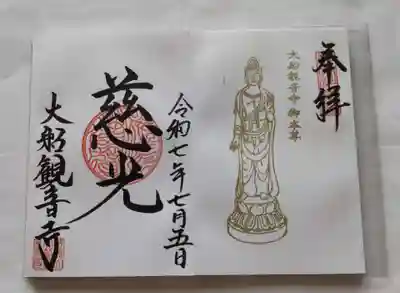 奉拝
大船観音寺御本尊
令和七年七月五日
慈光
大船観音寺